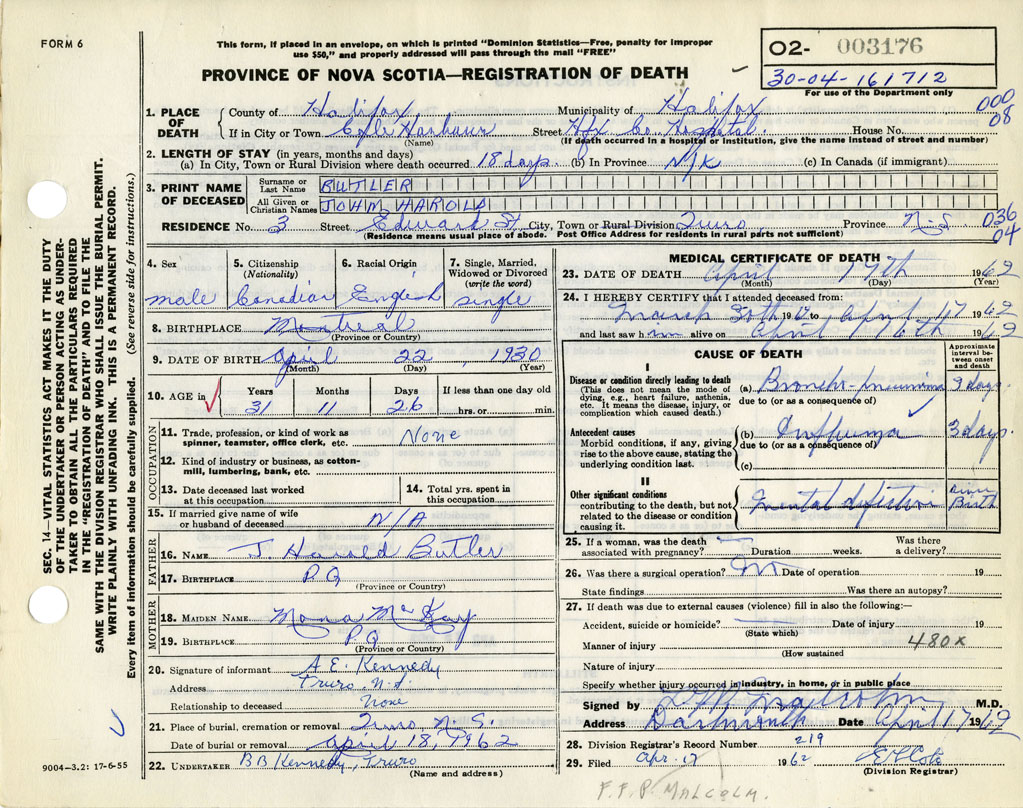 FORM 6
This form, if placed in an envelope, on which is printed "Dominion Statistics—Free, penalty for improper
use $50," and properly addressed will pass through the mail "FREE"
PROVINCE OF NOVA SCOTIA—REGISTRATION OF DEATH
O2- 003176
30-04-161712
For use of the Department only
000
08
SEC. 14—VITAL STATISTICS ACT MAKES IT THE DUTY
OF THE UNDERTAKER OR PERSON ACTING AS UNDER-
TAKER TO OBTAIN ALL THE PARTICULARS REQUIRED
IN THE "REGISTRATION OF DEATH" AND TO FILE THE
SAME WITH THE DIVISION REGISTRAR WHO SHALL ISSUE THE BURIAL PERMIT.
WRITE PLAINLY WITH UNFADING INK. THIS IS A PERMANENT RECORD.
Every item of information should be carefully supplied. (See reverse side for instructions.)
1. PLACE OF DEATH
County of Halifax Municipality of Halifax
If in City or Town Cole Harbour Street Hfx Co. Hospital. House No.
(Name) (If death occurred in a hospital or institution, give the name instead of street and number)
2. LENGTH OF STAY (in years, months and days)
(a) In City, Town or Rural Division where death occurred 18 days. (b) In Province N/K (c) In Canada (if immigrant)
3. PRINT NAME OF DECEASED
Surname or Last Name BUTLER
All Given or Christian Names JOHM HAROLD
RESIDENCE No. 3 Street Edward St. City, Town or Rural Division Truro, Province N-S
036
04
(Residence means usual place of abode. Post Office Address for residents in rural parts not sufficient)
4. Sex male
5. Citizenship (Nationality) Canadian
6. Racial Origin English
7. Single, Married, Widowed or Divorced (write the word) single
8. BIRTHPLACE Montreal
(Province or Country)
9. DATE OF BIRTH April 22, 1930
(Month) (Day) (Year)
10. AGE in Years 31 Months 11 Days 26 If less than one day old hrs. or min.
OCCUPATION
11. Trade, profession, or kind of work as spinner, teamster, office clerk, etc. None
12. Kind of industry or business, as cotton-mill, lumbering, bank, etc.
13. Date deceased last worked at this occupation
14. Total yrs. spent in this occupation
15. If married give name of wife or husband of deceased N/A
FATHER
16. NAME J. Harold Butler
17. BIRTHPLACE P.Q
(Province or Country)
MOTHER
18. MAIDEN NAME Mona McKay
19. BIRTHPLACE P.Q
(Province or Country)
20. Signature of informant A E. Kennedy
Address Truro N.S.
Relationship to deceased None
21. Place of burial, cremation or removal Truro N.S.
Date of burial or removal April 18, 1962
22. UNDERTAKER B B Kennedy, Truro
(Name and address)
9004—3.2: 17-6-55
MEDICAL CERTIFICATE OF DEATH
23. DATE OF DEATH April 17th 1962
(Month) (Day) (Year)
24. I HEREBY CERTIFY that I attended deceased from:
March 30th 1962 to April 17 1962
and last saw him alive on April 16th 1962
CAUSE OF DEATH
Approximate interval between onset and death
I
Disease or condition directly leading to death
(This does not mean the mode of dying, e.g., heart failure, asthenia, etc. It means the disease, injury, or complication which caused death.)
(a) Broncho-pneumonia
due to (or as a consequence of)
days.
Antecedent causes
Morbid conditions, if any, giving rise to the above cause, stating the underlying condition last.
(b)
due to (or as a consequence of)
3 days
(c)
II
Other significant conditions
contributing to the death, but not related to the disease or condition causing it.
mental
Birth
25. If a woman, was the death associated with pregnancy? Duration weeks. Was there a delivery?
26. Was there a surgical operation? No Date of operation 19
State findings Was there an autopsy?
27. If death was due to external causes (violence) fill in also the following:—
Accident, suicide or homicide? Date of injury 19
(State which)
Manner of injury 480x
(How sustained
Nature of injury
Specify whether injury occurred in industry, in home, or in public place
Signed by Malcolm M.D.
Address Dartmouth Date April 17 1962
28. Division Registrar's Record Number 219
29. Filed Apr. 17 1962
(Division Registrar)
F. F. P. MALCOLM.